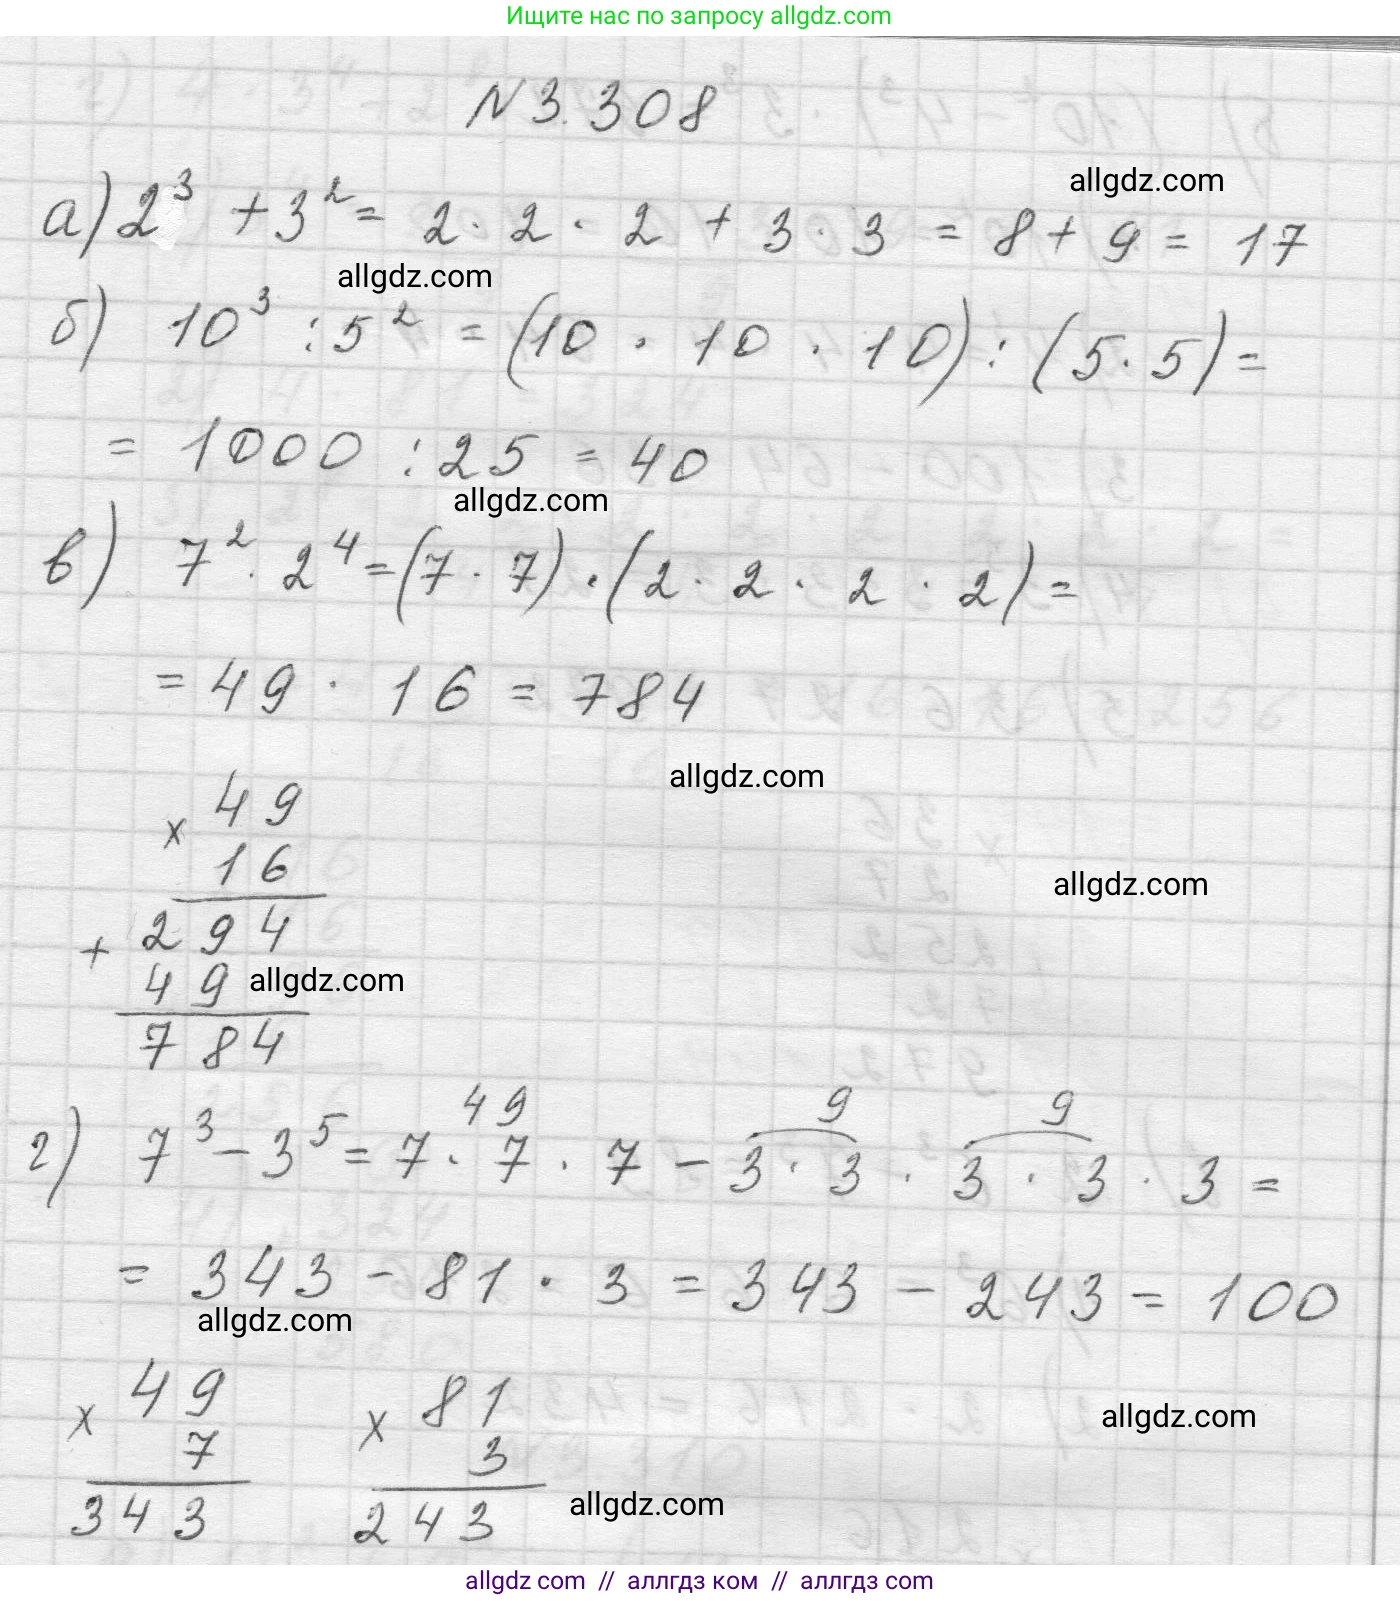 Ищите нас по запросу allgdz.com
N 3.308
allgdz.com
а) 2³ + 3² = 2 · 2 · 2 + 3 · 3 = 8 + 9 = 17
allgdz.com
б) 10³ : 5² = (10 · 10 · 10) : (5 · 5) =
= 1000 : 25 = 40
allgdz.com
в) 7² · 2⁴ = (7 · 7) · (2 · 2 · 2 · 2) =
= 49 · 16 = 784
allgdz.com
× 49
16
allgdz.com
+ 294
49
allgdz.com
784
49 9 9
г) 7³ − 3⁵ = 7 · 7 · 7 − 3 · 3 · 3 · 3 · 3 =
= 343 − 81 · 3 = 343 − 243 = 100
allgdz.com
× 49 × 81
allgdz.com
7 3
allgdz.com
343 243
allgdz com // аллгдз ком // аллгдз com